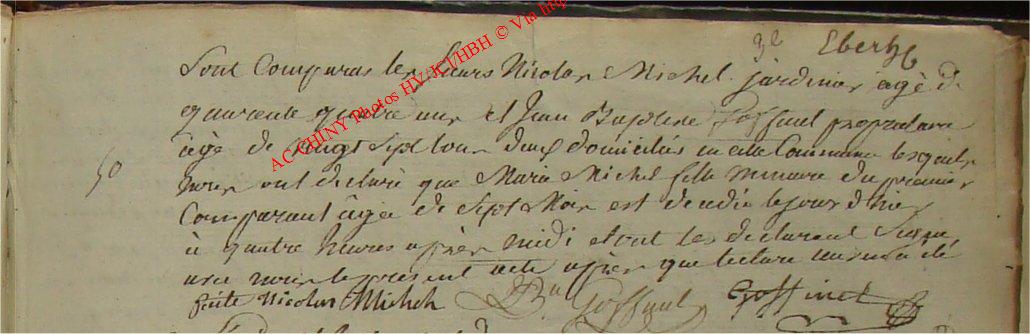 Eberh
Sont Comparus les sieurs Nicolas Michel jardinier âgé de
quarente quatre ans et Jean Baptiste Goffaut propriétaire
âgé de vingt Sept tous deux domiciliés en cette Commune lesquels
50
nous ont déclaré que Marie Michel fille mineure du premier
Comparant âgée de Sept Mois est décédée le jour d'hier
à quatre heures après midi et ont les déclarant Signé
avec nous le présent acte après que lecture leur en a été
faite Nicolas Michel Bte Goffaut Goffinet
AC CHINY Photos HV/KJ/HBH © Via http